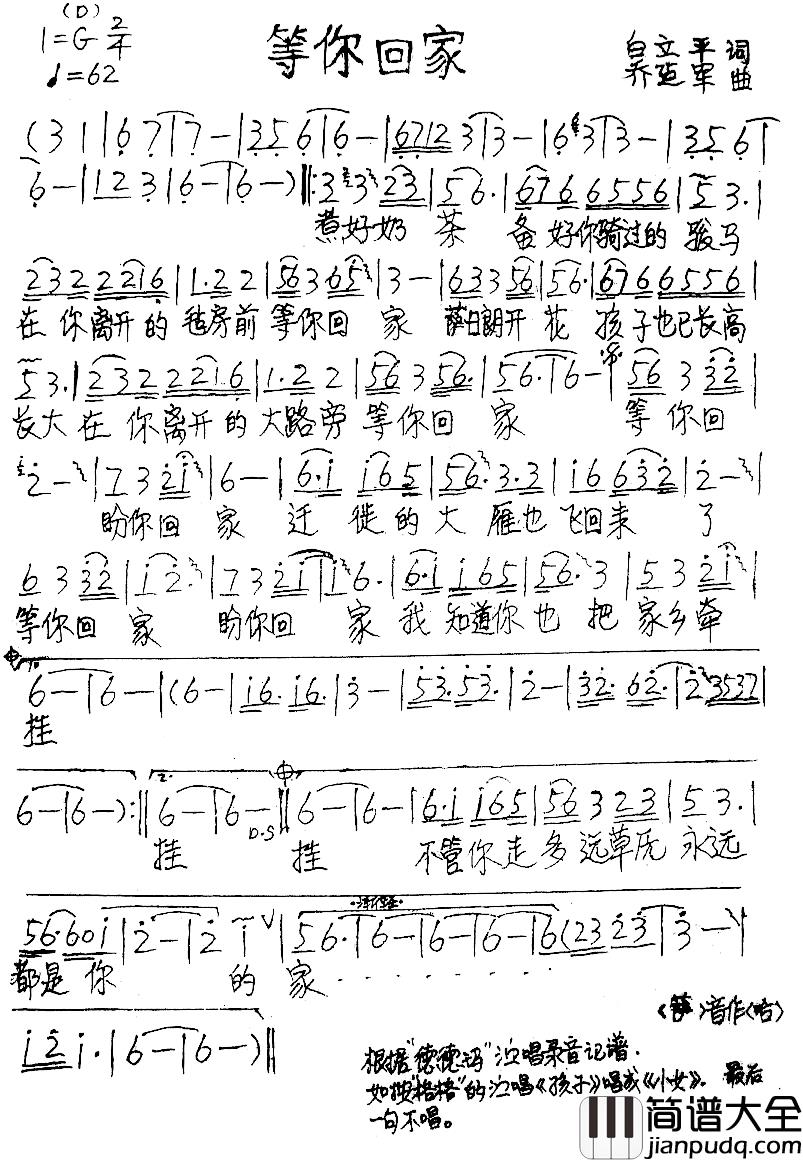 (D)
1=G 2/4
♩=62
等你回家
白立平 词
乔造军 曲
(3 1|6 7|7 -|3 5 6|6 -|6712 3|3 -|6 3|3 -|3 5 6|
6 -|1 2 3|6 -|6 -)‖:3 3 23|5 6.|676 6556|5 3.|
煮好奶 茶 备 好你骑过的 骏马
232 2216|1.2 2|56 3 65|3 -|63 3 56|56.|676 6556|
在 你离开的 毡房前 等你回 家 萨日朗开 花 孩 子也已长高
5 3.|232 2216|1.2 2|56 3 56.|56.|6 -|56 3 32|
长大在 你离开的大路旁 等你回 家 等 你回
2 -|7 3 21|6 -|6.1 165|56.3.3|16 632|2 -|
盼你回 家 迁 徙的大 雁也 飞回来 了
6 3 32|1 2.|7 3 21|1 6.|6.1 165|56. 3|5 3 21|
等你回 家 盼你回 家 我 知道你 也 把 家乡牵
6 -|6 -|(6 -|16. 16.|3 -|53. 53.|2 -|32. 62.|2 3537|
挂
6 -|6 -):‖2. 6 -|6 -‖6 -|6 -|6.1 165|56 3 23|5 3.|
D.S
挂 挂 不管你走多 远草原 永远
56.601|2 -|2 1 ∨|56.|6 -|6 -|6 -|6(23 23|3 -)|
都是 你 的 家 - - - - - - - -
1 2 1.|6 -|6 -)‖
根据“德德玛”演唱录音记谱.
如按“格格”的演唱《孩子》唱成《小女》. 最后
一句不唱。
简谱大全
jianpudq.com